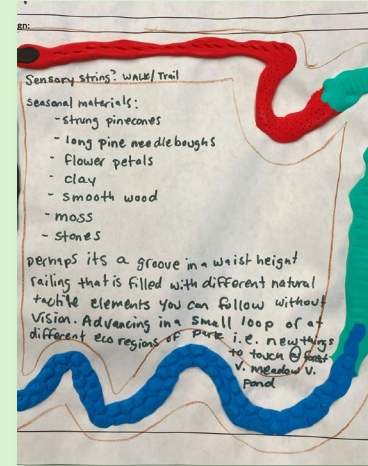 gn:
Sensory string? WALK/Trail
seasonal materials:
- strung pinecones
- long pine needle boughs
- flower petals
- clay
- smooth wood
- moss
- stones
perhaps its a groove in a waist height
railing that is filled with different natural
tactile elements you can follow without
vision. Advancing in a small loop or at
different eco regions of park i.e. new things
to touch @ forest
v. meadow v.
pond